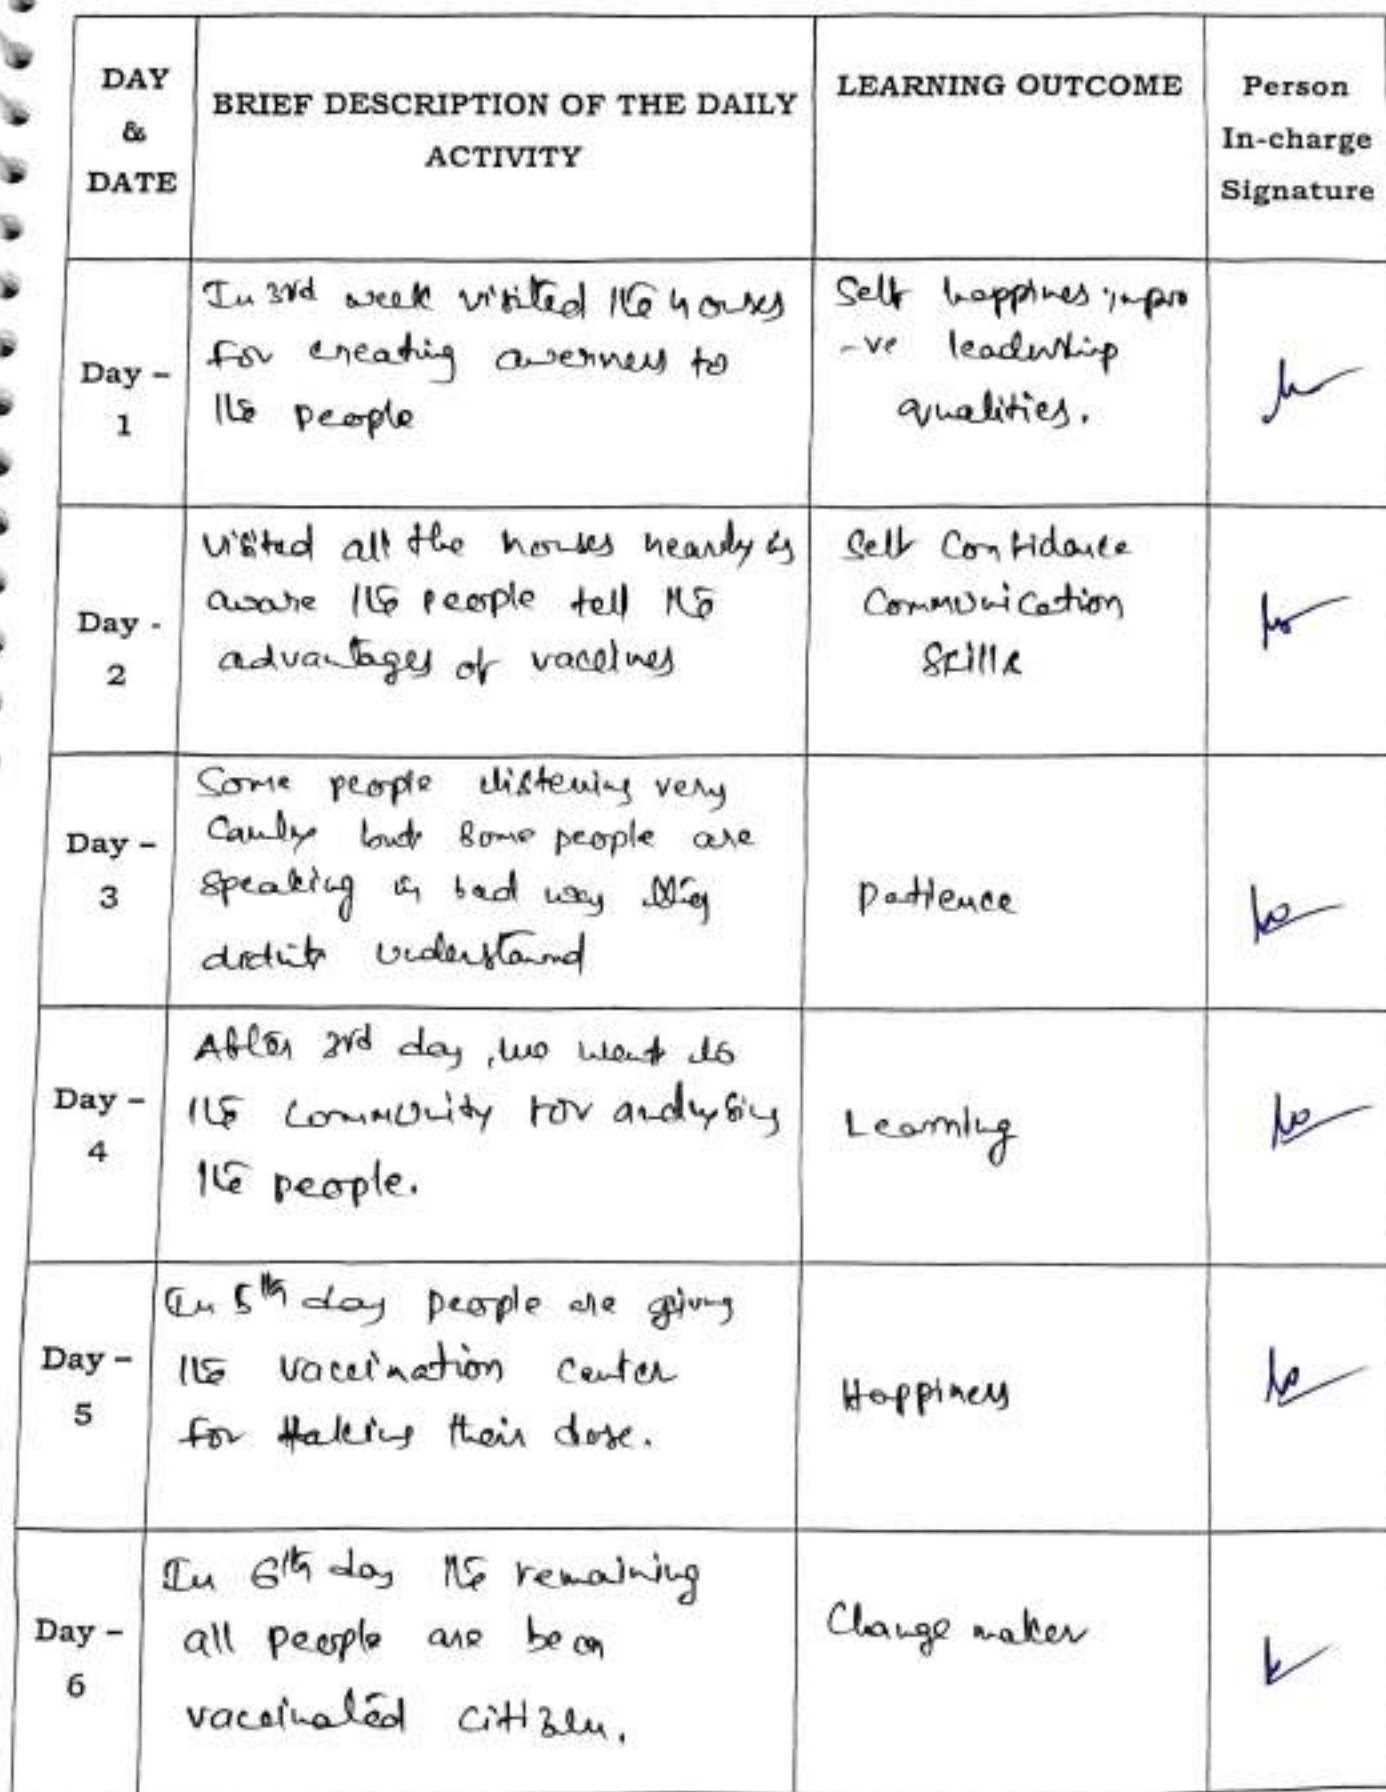 DAY
&
DATE
BRIEF DESCRIPTION OF THE DAILY
ACTIVITY
LEARNING OUTCOME
Person
In-charge
Signature
Day –
1
In 3rd week visited the houses
for creating awerness to
the people
Self happines, impro
-ve leadership
qualities.
Day -
2
visited all the houses nearly is
aware the people tell the
advantages of vaccines
Self Confidance
Communication
Skills
Day –
3
Some people listening very
but some people are
speaking in bad way they
didn't understand
Patience
Day –
4
After 3rd day, we went to
the community for analysing
the people.
Learning
Day –
5
In 5th day people are going
the vaccination center
for taking their dose.
Happiness
Day –
6
In 6th day the remaining
all people are been
vaccinated citizen.
Change maker